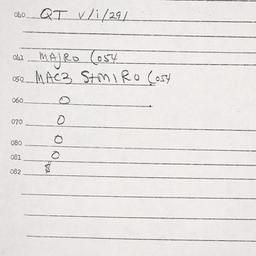 060 QT V/i/291
061 MAJRO (054
050 MAC3 StMIRO (054
060 0
070 0
080 0
081 0
082 $